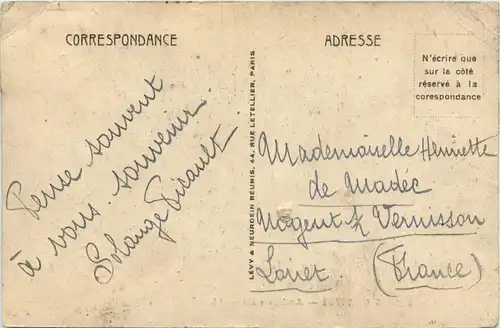 CORRESPONDANCE
Pense souvent
à vous. souvenir.
Solange Picault
LEVY & NEURDEIN REUNIS, 44, RUE LETELLIER, PARIS
ADRESSE
N'écrire que
sur la côté
réservé à la
corespondance
Mademoiselle Henriette
de Madéc
Nogent s/ Vernisson
Loiret. (France)